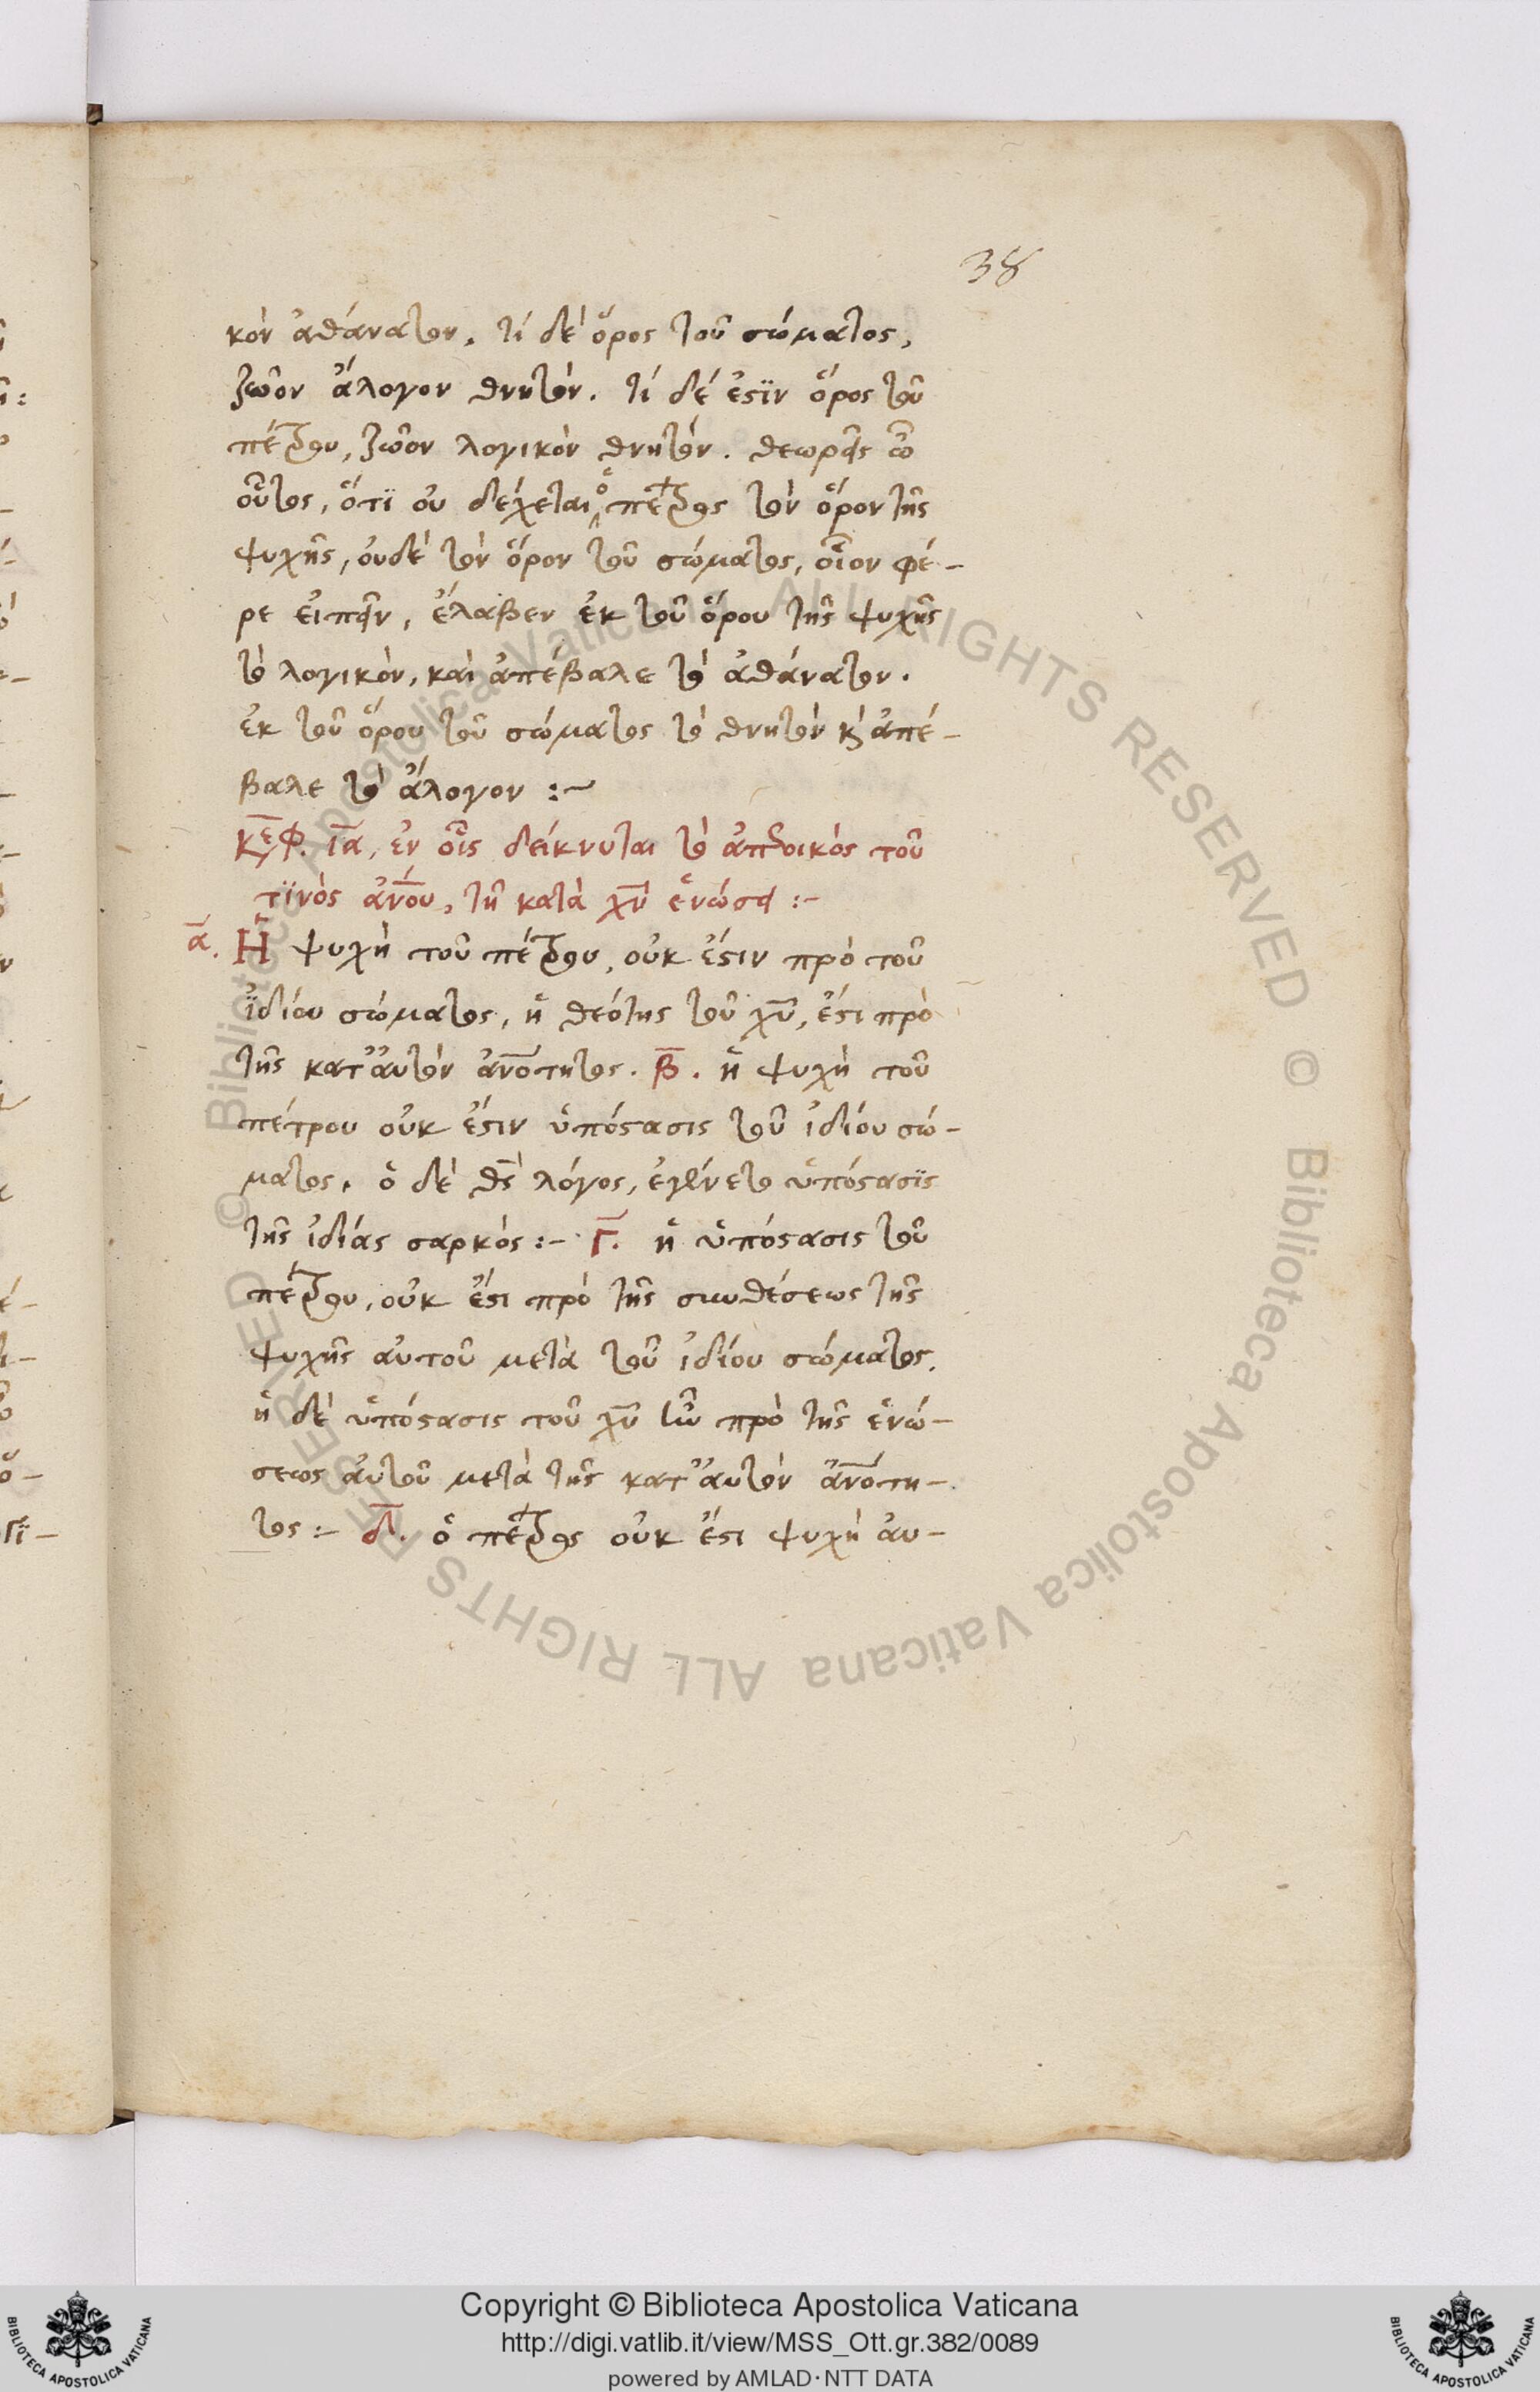 38
κὸν ἀθάνατον. τί δὲ ὅρος τοῦ σώματος,
ζῶον ἄλογον θνητόν. τί δέ ἐστϊν ὅρος τοῦ
πέτρου, ζῶον λογικὸν θνητόν. θεωρεῖς
οὗτος, ὅτϊ οὐ δέχεται ὁ πέτρος τὸν ὅρον τῆς
ψυχῆς, οὐδὲ τὸν ὅρον τοῦ σώματος, οἷον φέ-
ρε εἰπεῖν, ἔλαβεν ἐκ τοῦ ὅρου τῆς ψυχῆς
τὸ λογικὸν, καὶ ἀπέβαλε τὸ ἀθάνατον.
ἐκ τοῦ ὅρου τοῦ σώματος τὸ θνητὸν κ̀ ἀπέ-
βαλε τὸ ἄλογον :~
Κεφ. ια, ἐν οἷς δείκνυται τὸ ἀπεοικὸς τοῦ
τϊνὸς ἀνου, τῆ κατὰ χν ἑνώσει :-
α. Ἡ ψυχὴ τοῦ πέτρου, οὐκ ἔστιν πρὸ τοῦ
ἰδίου σώματος, ἡ θεότης τοῦ χυ, ἔστι πρὸ
τῆς κατ' αὐτὸν ἀνότητος. β. ἡ ψυχὴ τοῦ
πέτρου οὐκ ἔστιν ὑπόστασις τοῦ ἰδίου σώ-
ματος. ὁ δὲ θς λόγος, ἐγένετο ὑπόστασϊς
τῆς ἰδίας σαρκός :- Γ. ἡ ὑπόστασις τοῦ
πέτρου, οὐκ ἔστι πρὸ τῆς συνθέσεως τῆς
ψυχῆς αὐτοῦ μετὰ τοῦ ἰδίου σώματος.
ἡ δὲ ὑπόστασις τοῦ χυ ἦν πρὸ τῆς ἑνώ-
σεως αὐτοῦ μετὰ τῆς κατ' αὐτὸν ἀνότη-
τος :- δ. ὁ πέτρος οὐκ ἔστι ψυχὴ αὐ-
© Biblioteca Apostolica Vaticana ALL RIGHTS RESERVED © Biblioteca Apostolica Vaticana ALL RIGHTS RESERVED
Copyright © Biblioteca Apostolica Vaticana
http://digi.vatlib.it/view/MSS_Ott.gr.382/0089
powered by AMLAD·NTT DATA
BIBLIOTECA APOSTOLICA VATICANA
BIBLIOTECA APOSTOLICA VATICANA